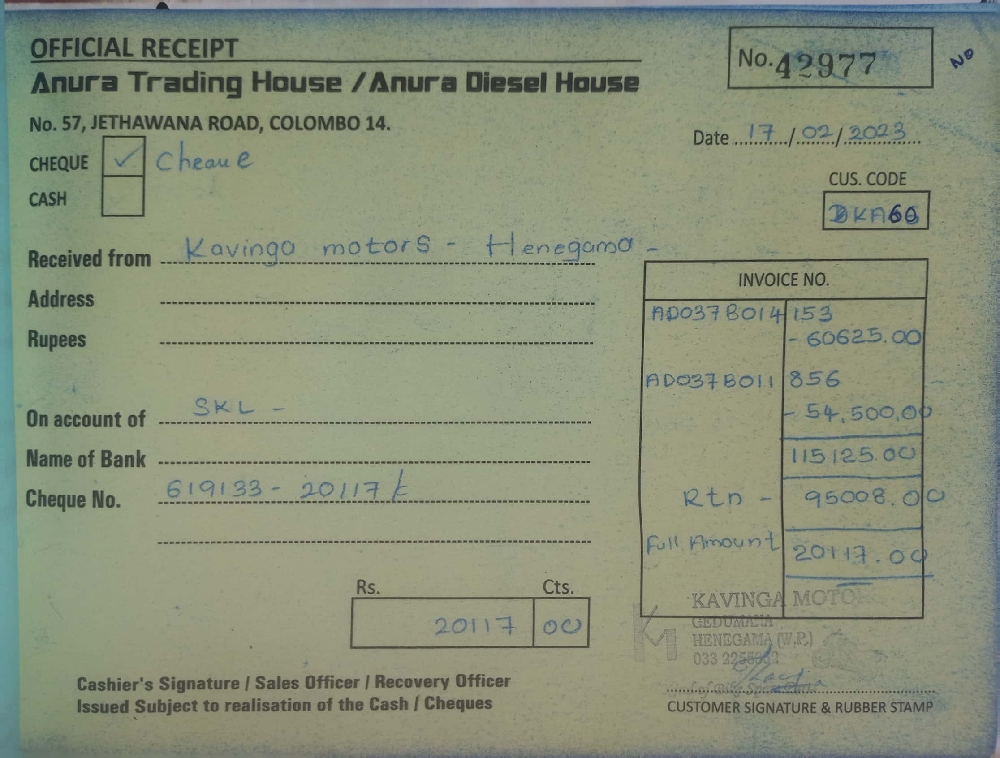 OFFICIAL RECEIPT
No. 42977
NO
Anura Trading House / Anura Diesel House
No. 57, JETHAWANA ROAD, COLOMBO 14.
Date 17 / 02 / 2023
CHEQUE ✓ Cheaue
CASH
CUS. CODE
BKA60
Received from Kavinga motors - Henegama -
Address
Rupees
On account of SKL -
Name of Bank
Cheque No. 619133 - 20117/
INVOICE NO.
AD037B014 153
- 60625.00
AD037B011 856
- 54,500.00
115125.00
Rtn - 95008.00
Full Amount 20117.00
Rs. Cts.
20117 00
KAVINGA MOTO
GEDUMANA
HENEGAMA (W.P.)
033
Cashier's Signature / Sales Officer / Recovery Officer
Issued Subject to realisation of the Cash / Cheques
CUSTOMER SIGNATURE & RUBBER STAMP